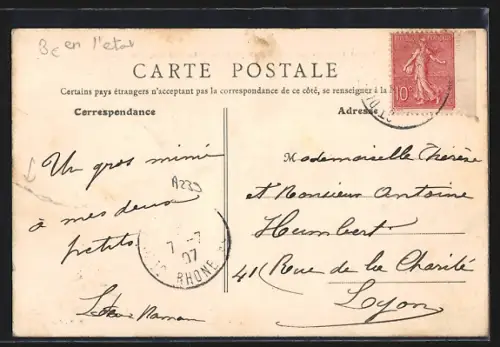 3c en l'etat
CARTE POSTALE
Certains pays étrangers n'acceptant pas la correspondance de ce côté, se renseigner à la
Correspondance
Adresse
10
Un gros mimi
à mes deux
petits
A239
7 -7
07
RHONE
Mademoiselle Thérèse
et Monsieur Antoine
Humbert
41 Rue de la Charité
Lyon